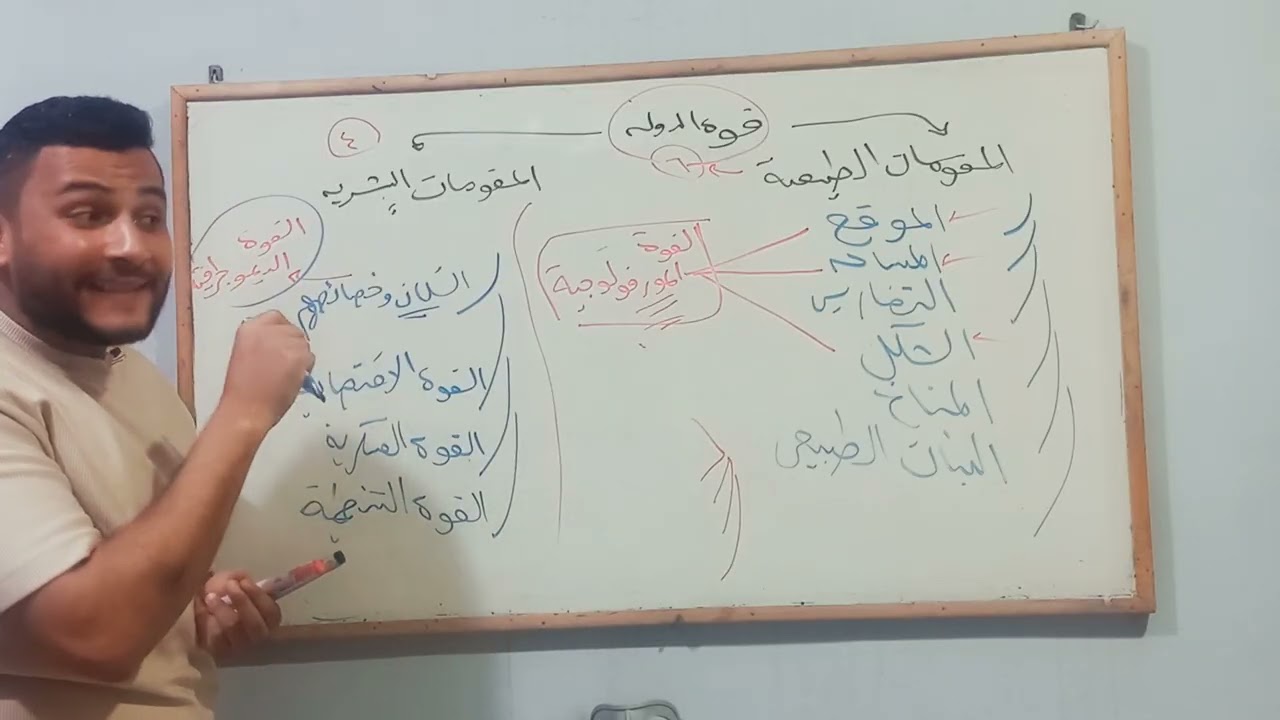 قوة الدوله
المقومات الطبيعية
٦
الموقع
المساحه
التضاريس
الشكل
المناخ
النبات الطبيعى
القوة
المورفولوجية
٤
المقومات البشريه
القوة
الديموجرافية
السكان وخصائصهم
القوة الاقتصادية
القوة العسكرية
القوة التنظيمية